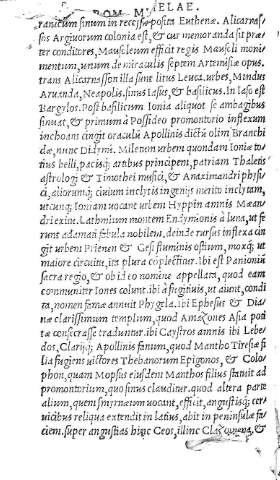 POM. MELAE.
ranicum sinum in recessu posita Euthenæ. Alicarnas
sos Argivorum colonia est, & cur memoranda sit præ
ter conditores, Mausoleum efficit regis Mausoli monu
mentum, unum de miraculis septem Artemisiæ opus.
trans Alicarnasson illa sunt litus Leuca, urbes, Mindus
Aruanda, Neapolis, sinus Iasus, & basilicus. In Iaso est
Bargylos. Post basilicum Ionia aliquot se ambagibus
sinuat, & primum à Possideo promontorio inflexum
inchoans cingit oraculū Apollinis dictū olim Branchi
dæ, nunc Didymi. Miletum urbem quondam Ioniæ to
tius belli, pacisq; artibus principem, patriam Thaletis
astrologi & Timothei musici, & Anaximandri physi
ci, aliorumq; civium inclytis ingenijs merito inclytam,
utcunq; Ioniam vocant urbem Hyppin amnis Mæan
dri exitu. Lathmium montem Endymionis à luna, ut fe
runt adamati fabula nobilem, deinde rursus inflexa cin
git urbem Prienen & Gesi fluminis ostium, moxq; ut
maiore circuitu, ita plura cōplectitur. Ibi est Panioniū
sacra regio, & ob id eo nomine appellam, quod eam
communiter Iones colunt. ibi à fugitivis, ut aiunt, condi
ta, nomen famæ annuit Phygela. ibi Ephesus & Dia
næ clarissimum templum, quod Amazones Asia poti
tæ consecrasse traduntur. ibi Caystros amnis ibi Lebe-
dos, Clarijq; Apollinis fanum, quod Mantho Tiresiæ fi
lia fugiens victores Thebanorum Epigonos, & Colo-
phon, quam Mopsus eiusdem Manthos filius statuit ad
promontorium, quo sinus clauditur. quod altera parte
alium, quem smyrnæum vocant, efficit, angustisq; cer
vicibus reliqua extendit in latius, abit in peninsulæ fa-
ciem. super angustias hinc Teos, illinc Clazomenæ, &